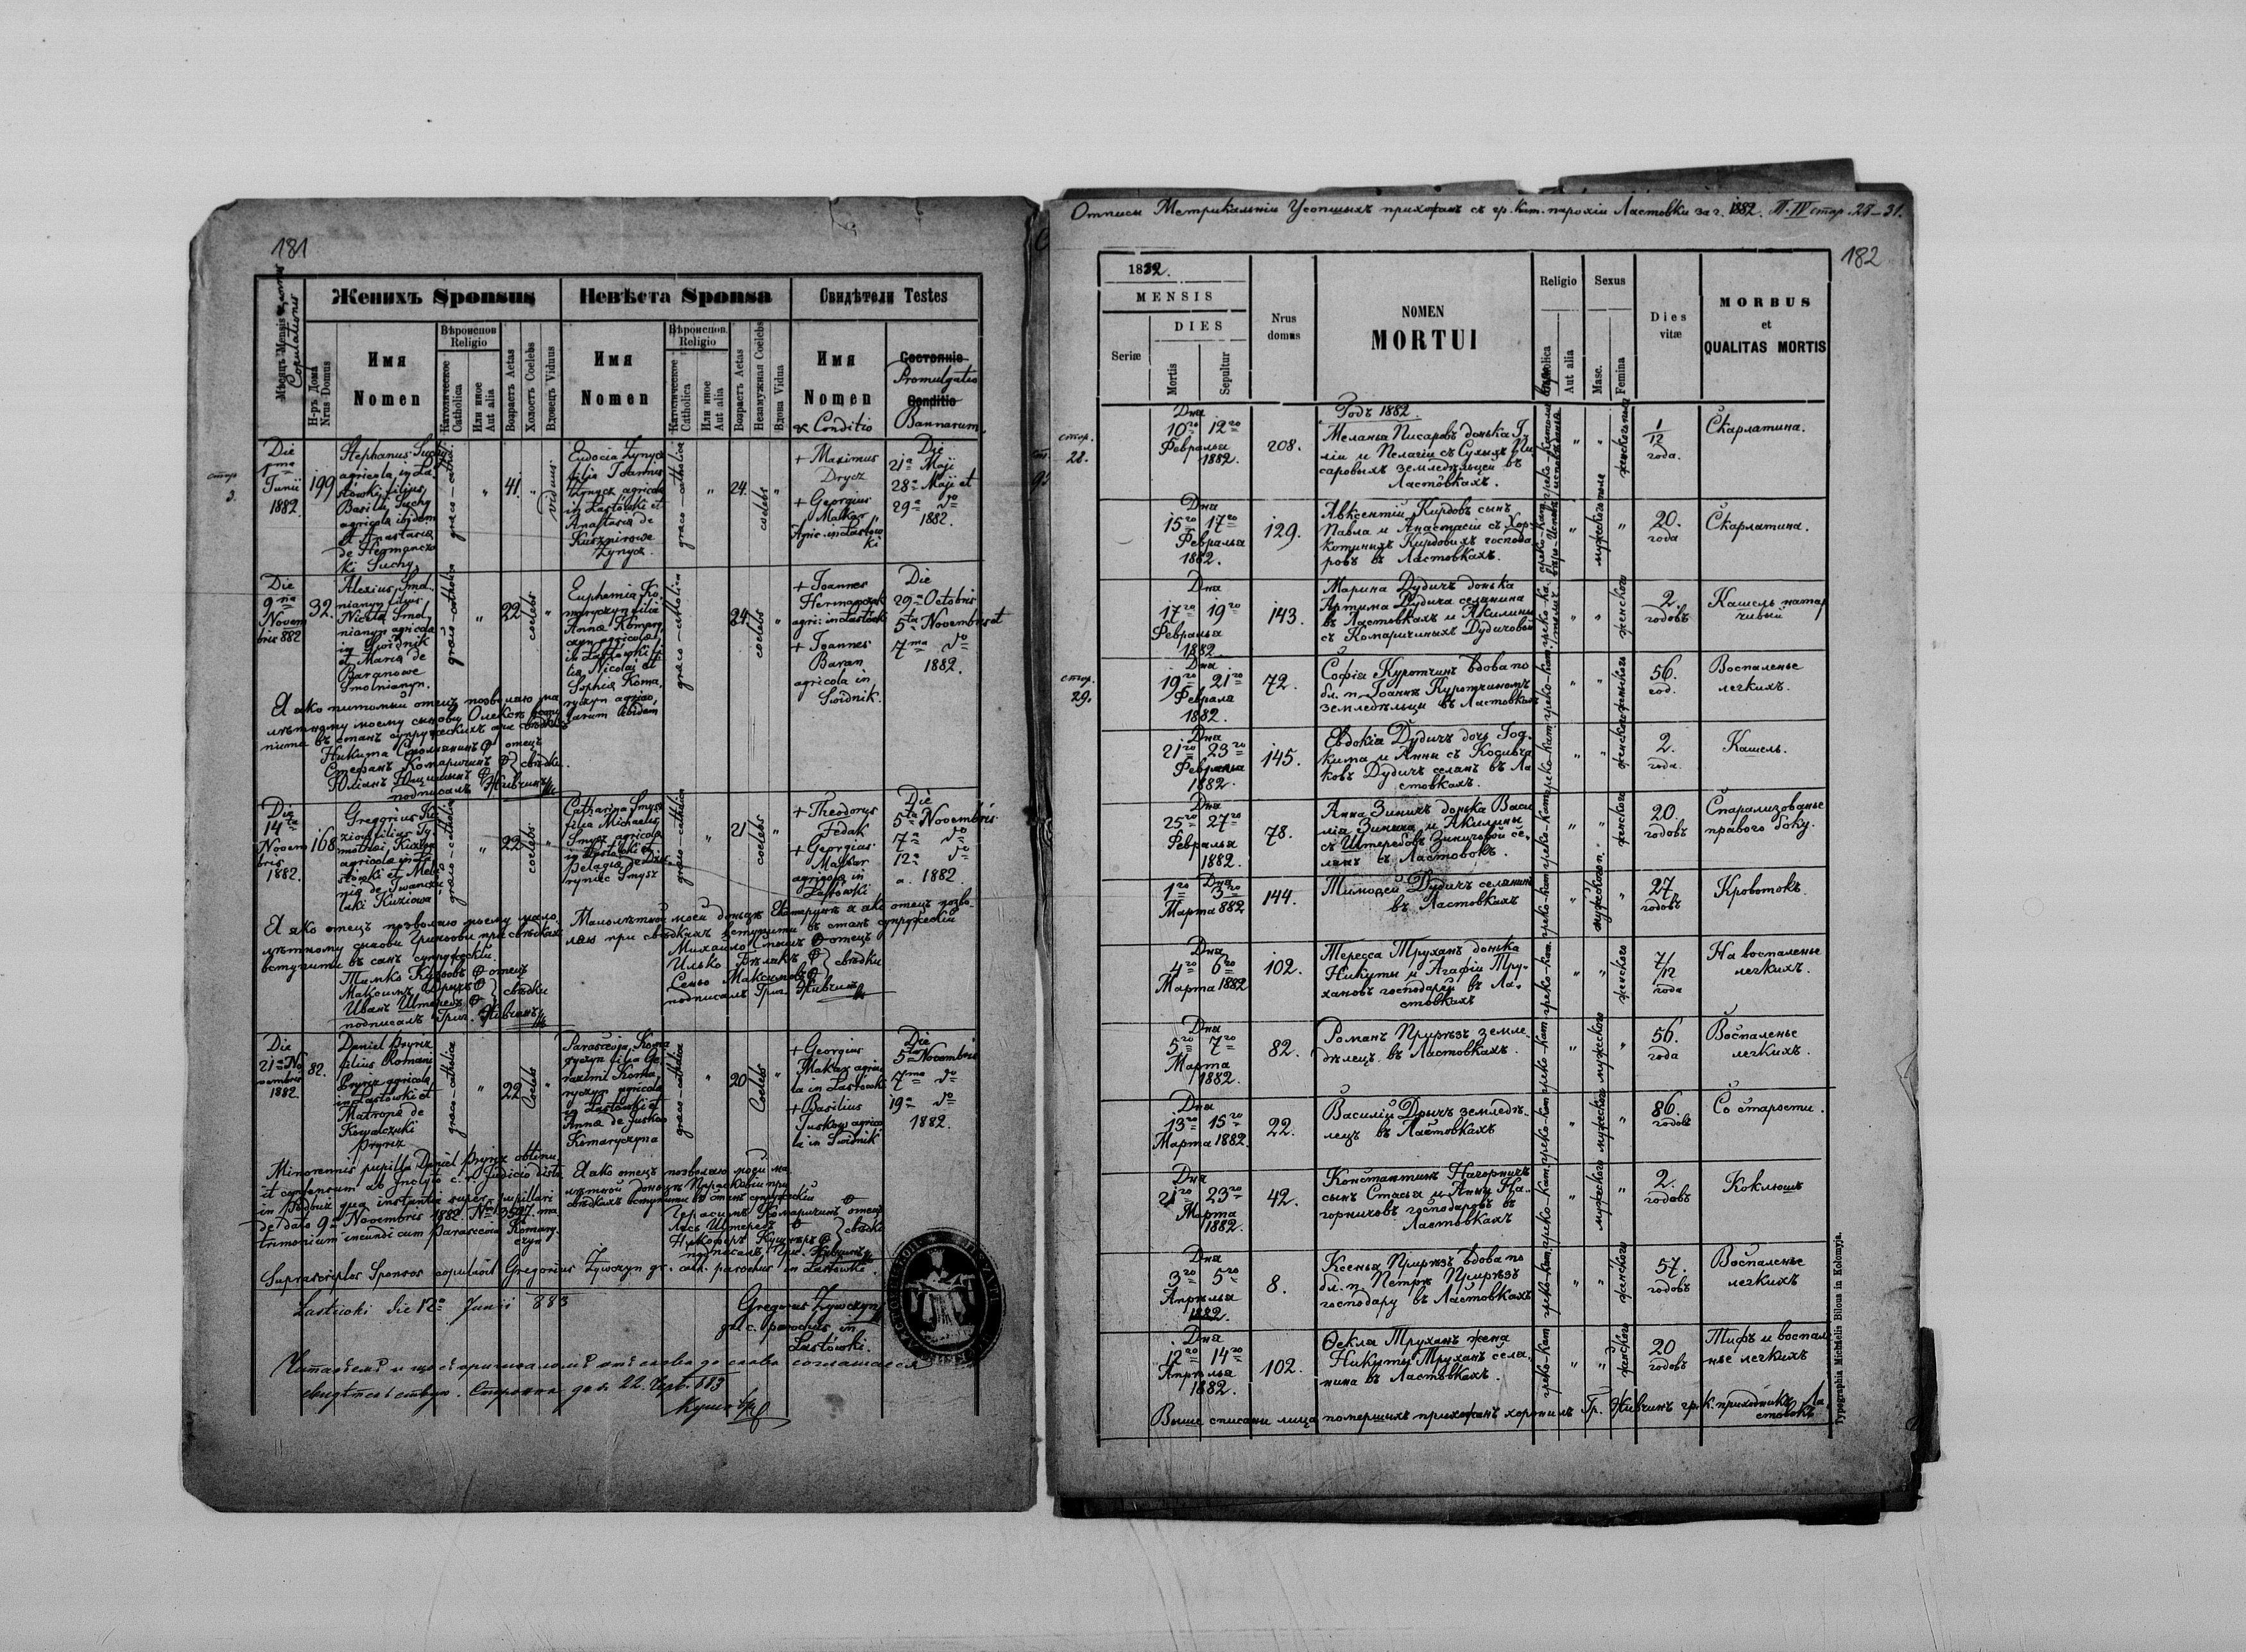 181
Женихъ Sponsus
Невѣста Sponsa
Свидѣтели Testes
Мѣсяцъ Mensis
Copulationis
Н-ръ Дома
Nrus Domus
Имя
Nomen
Вѣроиспов
Religio
Католическое
Catholica
Или иное
Aut alia
Возрастъ Aetas
Холостъ Coelebs
Вдовецъ Viduus
Имя
Nomen
Вѣроиспов.
Religio
Католическое
Catholica
Или иное
Aut alia
Возрастъ Aetas
Незамужная Coelebs
Вдова Vidua
Имя
Nomen
& Conditio
Состояніе
Promulgatio
Conditio
Bannorum
стор
3.
Die
1ma
Junii
1882.
199
Stephanus Suchy
agricola in La
stówki filius
Basilii Suchy
agricola ibidem
et Anastasia
de Hermanczo
ki Suchy
graeco-cathol.
"
41.
"
viduus
Eudocia Zynycz
filia Joannis
Zynycz agricola
in Lastówki et
Anastasia de
Kusznirowe
Zynycz.
graeco-catholica
"
24.
coelebs
"
+ Maximus
Drycz
+ Georgius
Makar
Agric. in Lastów
ki
Die
21a Maji
28a Maji et
29a do
1882.
Die
9na
Novem
bris 882
32.
Alexius Smol
nianyn filius
Nicita Smol
nianyn agricola
in Swidnik
et Maria de
Baranowe
Smolnianyn.
graeco-catholica
"
22
coelebs
"
Euphemia Ko
maryczyn filia
Sophia Koma
ryczyn agrico
larum ibidem
graeco-catholica
24.
coelebs
"
+ Joannes
Hermanczak
agri: in Lastówki
+ Joannes
Baran
agricola in
Swidnik.
Die
29a Octobris
5ta Novembris et
7ma do
1882.
Я яко питомый отецъ позволяю ма
лѣтному моему сынови Олексѣ всту
пити въ станъ супружескій при свѣдкахъ
Никита Смольнянинъ отецъ
Стефанъ Комаричинъ свѣдки
подписалъ Живчинъ
Die
14ta
Novem
bris
1882.
168
Gregorius Ku
ziow filius Ty
mothei Kuziow
agricola in La
stówki et Mela
nia de Iwanczi
laki Kuziowa
graeco-catholica
"
22
coelebs
"
Catharina Smysz
filia Michaelis
Smysz agricola
in Lastówki et
Pelagia de Dry
ryniec Smysz
graeco-catholica
"
21
coelebs
"
+ Theodorus
Fedak
+ Georgius
Makar
agricola in
Lastówki
Die
5ta Novembris
7a do
12a do
a. 1882.
Я яко отецъ позволяю моему мало
лѣтному сынови Григорови при свѣдкахъ
вступити въ санъ супружескій.
Тимко Кузовъ отецъ
Максимъ Дричъ свѣдки
Иванъ Штеребъ
подписалъ Григ. Живчинъ
Малолѣтной моей доньцѣ Екатеринѣ я яко отецъ позво
ляю при свѣдкахъ вступити въ станъ супружескій
Михайло Смышъ отецъ
Илько Бѣлакъ свѣдки
Сеньо Максимовъ
подписалъ Григ. Живчинъ
Die
21a No
vembris
1882.
82.
Daniel Pryriz
filius Romani
Pryriz agricola
in Lastówki et
Matrona de
Kowalczuki
Pryriz
graeco-catholica
"
22
Coelebs
"
Parascevia Koma
ryczyn filia Ge
rasimi Koma
ryczyn agricola
in Lastówki et
Anna de Juskow
Komaryczyna
graeco-catholica
"
20
Coelebs
"
+ Georgius
Makar agrico
la in Lastówki
+ Basilius
Juskow agrico
la in Swidnik
Die
5ta Novembris
7ma do
19a do
1882.
Minorennis pupillo Daniel Pryriz obtinu
it consensum ab Inclyto c. r. Judicio distr.
in Podbuz qua instantia super pupillari
de dato 9a Novembris 1882. Nr. 3597. ma
trimonium ineundi cum Parascevia Komary
czyn
Я яко отецъ позволяю моей ма
лѣтной доньцѣ Параскевіи при
свѣдкахъ вступити въ станъ супружескій
Герасимъ Комаричинъ отецъ
Лесь Штеребъ свѣдки
Никифоръ Кушнѣръ
подписалъ Григ. Живчинъ
Suprascriptos Sponsos copulavit Gregorius Zywczyn gr. cath. parochus in Lastówki.
Lastiwki die 12a Junii 883
Gregorius Zywczyn
gr. c. parochus in
Lastówki.
соглашается
свидѣтельствую. Сторонна дня 22. Черв. 883
Отписы Метрикальніи Усопшыхъ прихожанъ съ гр. кат. парохіи Ластовки за г. 1882. Т. IV стор. 28–31.
182
1882.
MENSIS
Seriæ
DIES
Mortis
Sepultur
Nrus
domus
NOMEN
MORTUI
Religio
Catholica
Aut alia
Sexus
Masc.
Femina
Dies
vitæ
MORBUS
et
QUALITAS MORTIS
стор.
28.
Годъ 1882.
Дня
10го 12го
Февральа
1882.
208.
Меланья Писаровъ донька Г
ліи и Пелагіи съ Сухихъ Пи
саровыхъ земледѣльцеи въ
Ластôвкахъ.
греко-католич.
"
"
женского пола
1/12
года.
Скарлатина.
Дня
15го 17го
Февральа
1882.
129.
Авксентій Кирдовъ сынъ
Павла и Анастасіи съ Хор
котиныхъ Кирдовыхъ господа
ровъ въ Ластовкахъ.
греко-кат.
"
мужеского пола
"
20.
года
Скарлатина.
Дня
17го 19го
Февральа
1882.
143.
Марина Дудичъ донька
Артима Дудича селянина
въ Ластовкахъ и Акилины
съ Комаричиныхъ Дудичовой
греко-ка.
"
"
женского
2.
годовъ
Кашель натар
чивый
стор.
29.
Дня
19го 21го
Феврала
1882.
72.
Софія Куротчинъ вдова по
бл. п. Іоаннѣ Куротчиномъ
земледѣльци въ Ластовкахъ
греко-кат.
"
"
женского
56.
год.
Воспаленье
легкихъ.
Дня
21го 23го
Февральа
1882.
145.
Евдокіа Дудичъ дочь Іоа
кима и Анны съ Кодивча
ковъ Дудичъ селянъ въ Ла
стовкахъ.
греко-кат.
"
"
женского
2.
года.
Кашель.
Дня
25го 27го
Февральа
1882.
78.
Анна Зиничъ донька Васи
лія Зинича и Акилины
съ Штеребовъ Зиничовой се
лянъ въ Ластовокъ.
греко-кат.
"
"
женского
20.
годовъ
Спарализованье
правого боку.
Дня
1го 3го
Марта 882
144.
Тимоѳей Дудичъ селянинъ
въ Ластовкахъ
греко-кат.
"
мужеского п.
"
27
годовъ
Кровотокъ.
Дня
4го 6го
Марта 1882
102.
Тересса Труханъ донька
Никиты и Агафіи Тру
хановъ господарей въ Ла
стовкахъ
греко-кат.
"
"
женского
7/12
года
На воспаленье
легкихъ.
Дня
5го 7го
Марта
1882.
82.
Романъ Прирѣзъ земле
дѣлецъ въ Ластовкахъ.
греко-кат.
"
мужеского
"
56.
года
Воспаленье
легкихъ.
Дня
13го 15го
Марта 1882.
22.
Василій Дричъ земледѣ
лецъ въ Ластовкахъ
греко-кат
"
мужеского
"
86.
годовъ
Со старости.
Дня
21го 23го
Марта
1882.
42.
Константинъ Нагорничъ
сынъ Стаська и Анны На
горничовъ господаровъ въ
Ластовкахъ
греко-кат.
"
мужеского
"
2.
годовъ
Коклюшъ
Дня
3го 5го
Априльа
1882.
8.
Ксенья Прирѣзъ вдова по
бл. п. Петрѣ Прирѣзъ
господару въ Ластовкахъ
греко-кат.
"
"
женского
57.
годовъ
Воспаленье
легкихъ
Дня
12го 14го
Априльа
1882.
102.
Ѳекла Труханъ жена
Никиты Труханъ селя
нина въ Ластовкахъ.
греко-кат
"
"
женского
20
годовъ
Тифъ и воспале
нье легкихъ
Выше списани лица помершихъ прихожанъ хоронилъ Гр. Живчинъ гр. к. приходникъ Ла
стовокъ
Typographia Michaelis Bilous in Kolomyja.